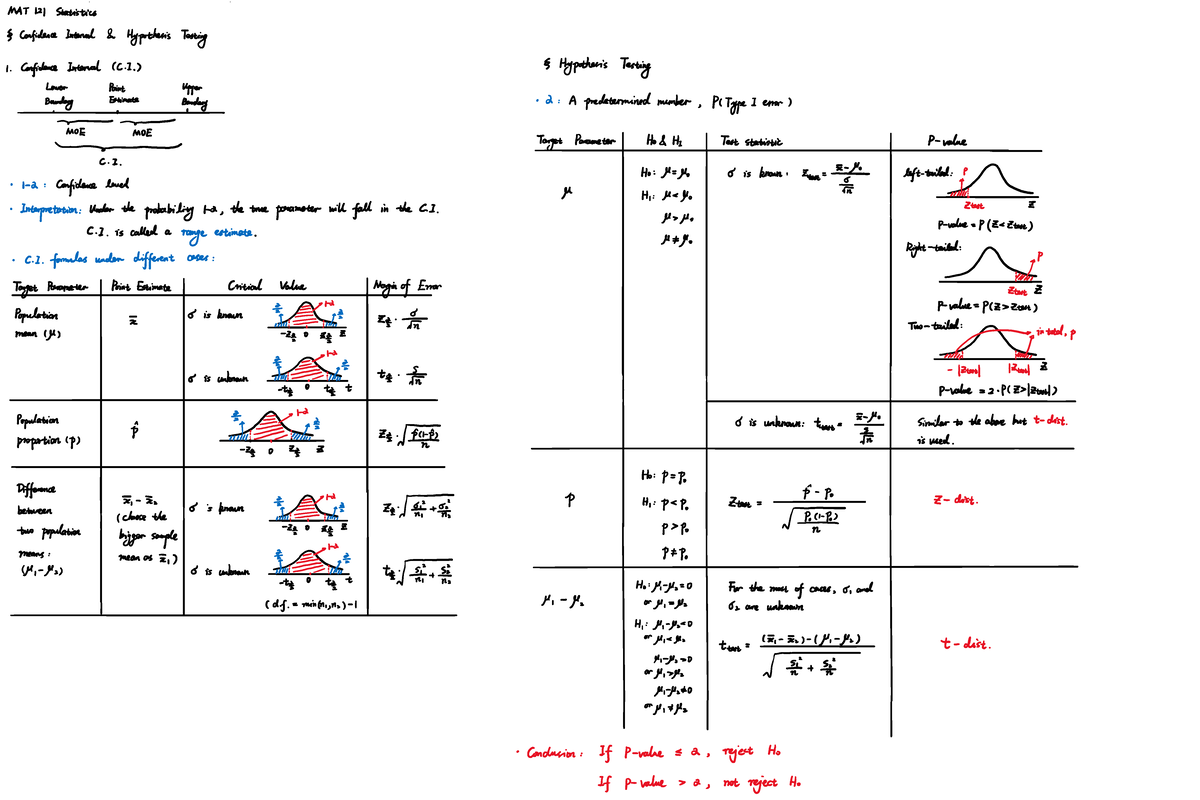 MAT 121 Statistics
§ Confidence Interval & Hypothesis Testing
1. Confidence Interval (C.I.)
Lower Point Upper
Bounday Estimate Bounday
MOE MOE
C.I.
· 1-α : Confidence level
· Interpretation: Under the probability 1-α, the true parameter will fall in the C.I.
C.I. is called a range estimate.
· C.I. formulas under different cases:
Target Parameter Point Estimate Critical Value Margin of Error
Population
mean (μ)
x̄
σ is known
α/2 1-α α/2
-Zα/2 0 Zα/2 Z
Zα/2 · σ/√n
σ is unknown
α/2 1-α α/2
-tα/2 0 tα/2 t
tα/2 · S/√n
Population
proportion (p)
p̂
α/2 1-α α/2
-Zα/2 0 Zα/2 Z
Zα/2 · √(p̂(1-p̂)/n)
Difference
between
two population
means:
(μ₁-μ₂)
x̄₁ - x̄₂
(choose the
bigger sample
mean as x̄₁)
σ is known
α/2 1-α α/2
-Zα/2 0 Zα/2 Z
Zα/2 · √(σ₁²/n₁ + σ₂²/n₂)
σ is unknown
α/2 1-α α/2
-tα/2 0 tα/2 t
tα/2 · √(S₁²/n₁ + S₂²/n₂)
(d.f. = min(n₁,n₂)-1
§ Hypothesis Testing
· α : A predetermined number, P(Type I error)
Target Parameter H₀ & H₁ Test statistic P-value
μ
H₀: μ=μ₀
H₁: μ<μ₀
μ>μ₀
μ≠μ₀
σ is known. Ztest = (x̄-μ₀)/(σ/√n)
left-tailed: P
Ztest Z
P-value = P(Z<Ztest)
Right-tailed: P
Ztest Z
P-value = P(Z>Ztest)
Two-tailed: in total, P
-|Ztest| |Ztest| Z
P-value = 2·P(Z>|Ztest|)
σ is unknown: ttest = (x̄-μ₀)/(S/√n)
Similar to the above but t-dist.
is used.
p
H₀: p=p₀
H₁: p<p₀
p>p₀
p≠p₀
Ztest = (p̂-p₀)/√(p₀(1-p₀)/n)
Z-dist.
μ₁-μ₂
H₀: μ₁-μ₂=0
or μ₁=μ₂
H₁: μ₁-μ₂<0
or μ₁<μ₂
μ₁-μ₂>0
or μ₁>μ₂
μ₁-μ₂≠0
or μ₁≠μ₂
For the most of cases, σ₁ and
σ₂ are unknown
ttest = ((x̄₁-x̄₂)-(μ₁-μ₂))/√(S₁²/n + S₂²/n)
t-dist.
· Conclusion: If P-value ≤ α, reject H₀
If p-value > α, not reject H₀